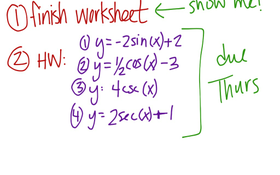 ① finish worksheet ← show me!
② HW: ① y=-2sin(x)+2
② y=½cos(x)-3
③ y= 4csc(x)
④ y=2sec(x)+1
due
Thurs